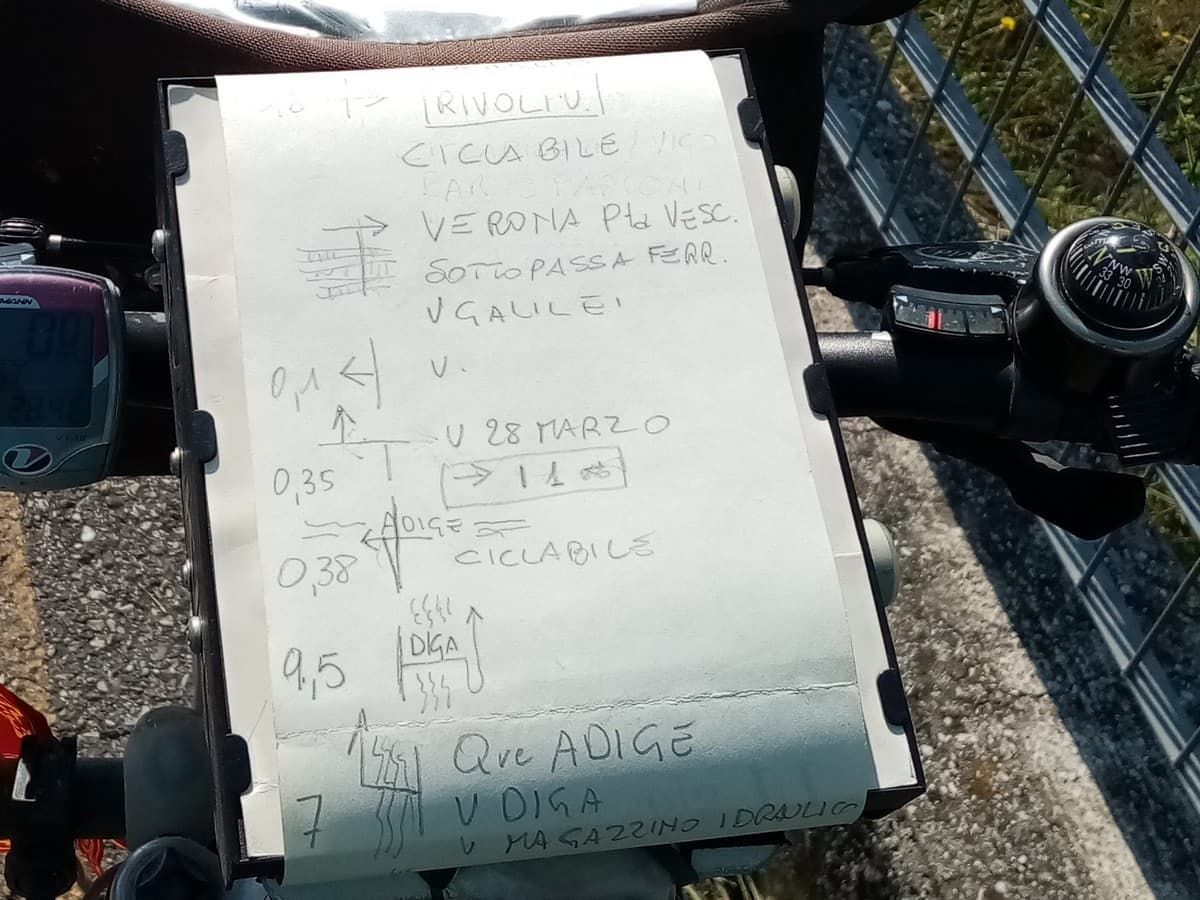 RIVOLI V.
CICLABILE
VERONA Pta VESC.
SOTTOPASSA FERR.
V GALILEI
0,1 V.
V 28 MARZO
0,35
ADIGE
0,38 CICLABILE
DIGA
9,5
Qve ADIGE
7 V DIGA
V MAGAZZINO IDRAULICO
MANN
N NW W SW
33 30 24